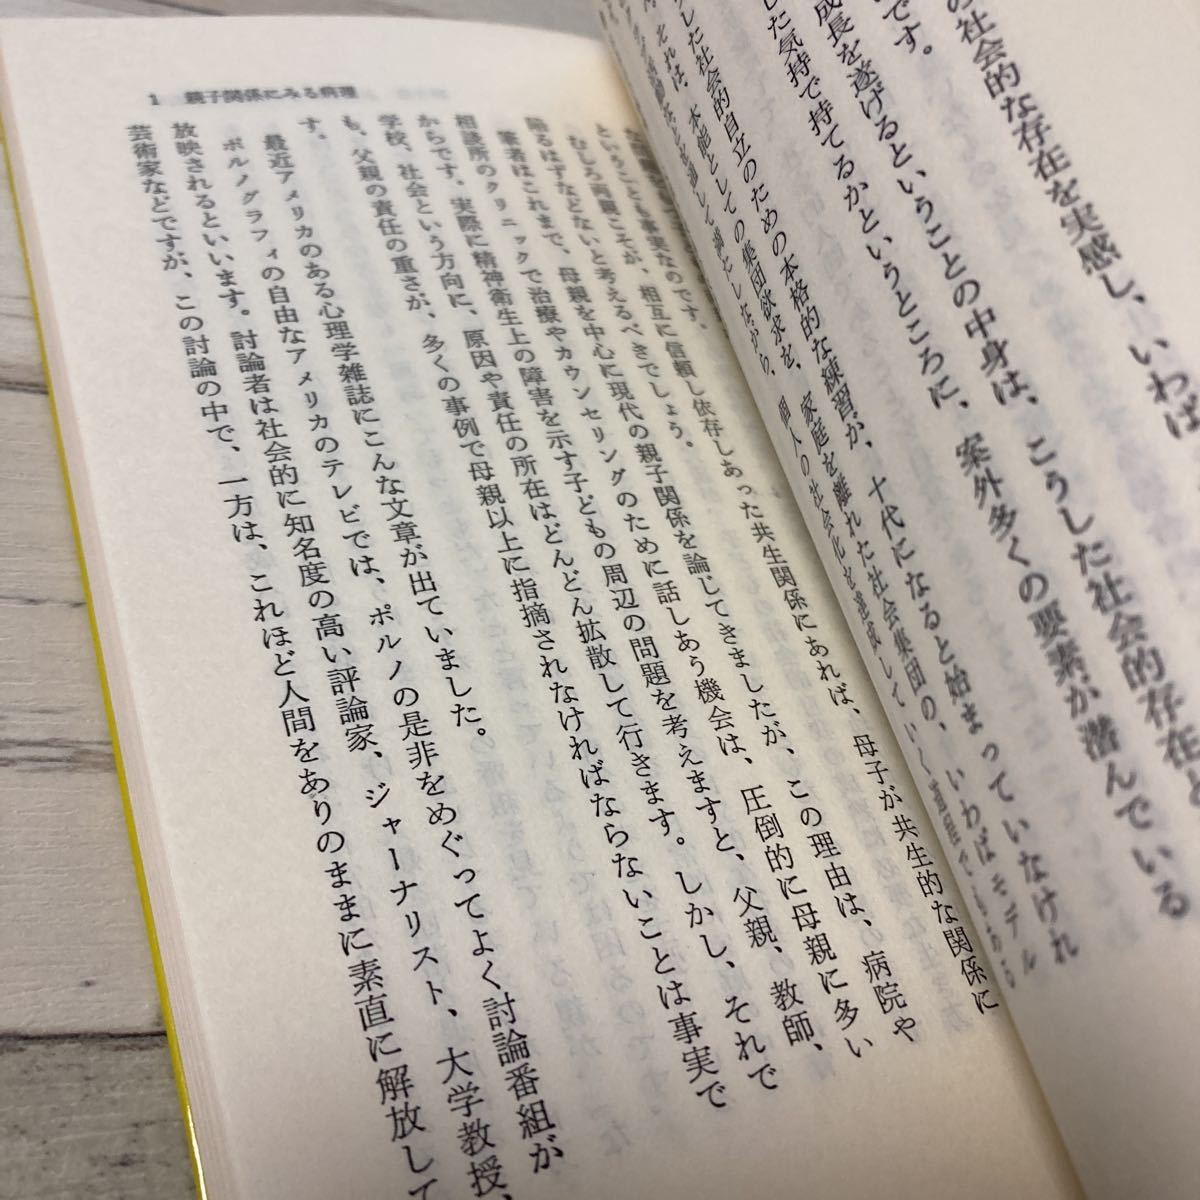 の社会的な存在を実感し、いわば
です。
成長を遂げるということの中身は、こうした社会的存在と
した気持で持てるかというところに、案外多くの要素が潜んでいる
した社会的自立のための本格的な練習が、十代になると始まっていなけれ
それは、本能としての集団欲求を、家庭を離れた社会集団の、いわばモデル
を通して満たしながら、個人の社会化を達成していく過程でもある
1 親子関係にみる病理
ということも事実なのです。
むしろ両親こそが、相互に信頼し依存しあった共生関係にあれば、母子が共生的な関係に
陥るはずなどないと考えるべきでしょう。
筆者はこれまで、母親を中心に現代の親子関係を論じてきましたが、この理由は、病院や
相談所のクリニックで治療やカウンセリングのために話しあう機会は、圧倒的に母親に多い
からです。実際に精神衛生上の障害を示す子どもの周辺の問題を考えますと、父親、教師、
学校、社会という方向に、原因や責任の所在はどんどん拡散して行きます。しかし、それで
も、父親の責任の重さが、多くの事例で母親以上に指摘されなければならないことは事実で
す。
最近アメリカのある心理学雑誌にこんな文章が出ていました。
ポルノグラフィの自由なアメリカのテレビでは、ポルノの是非をめぐってよく討論番組が
放映されるといいます。討論者は社会的に知名度の高い評論家、ジャーナリスト、大学教授、
芸術家などですが、この討論の中で、一方は、これほど人間をありのままに素直に解放して